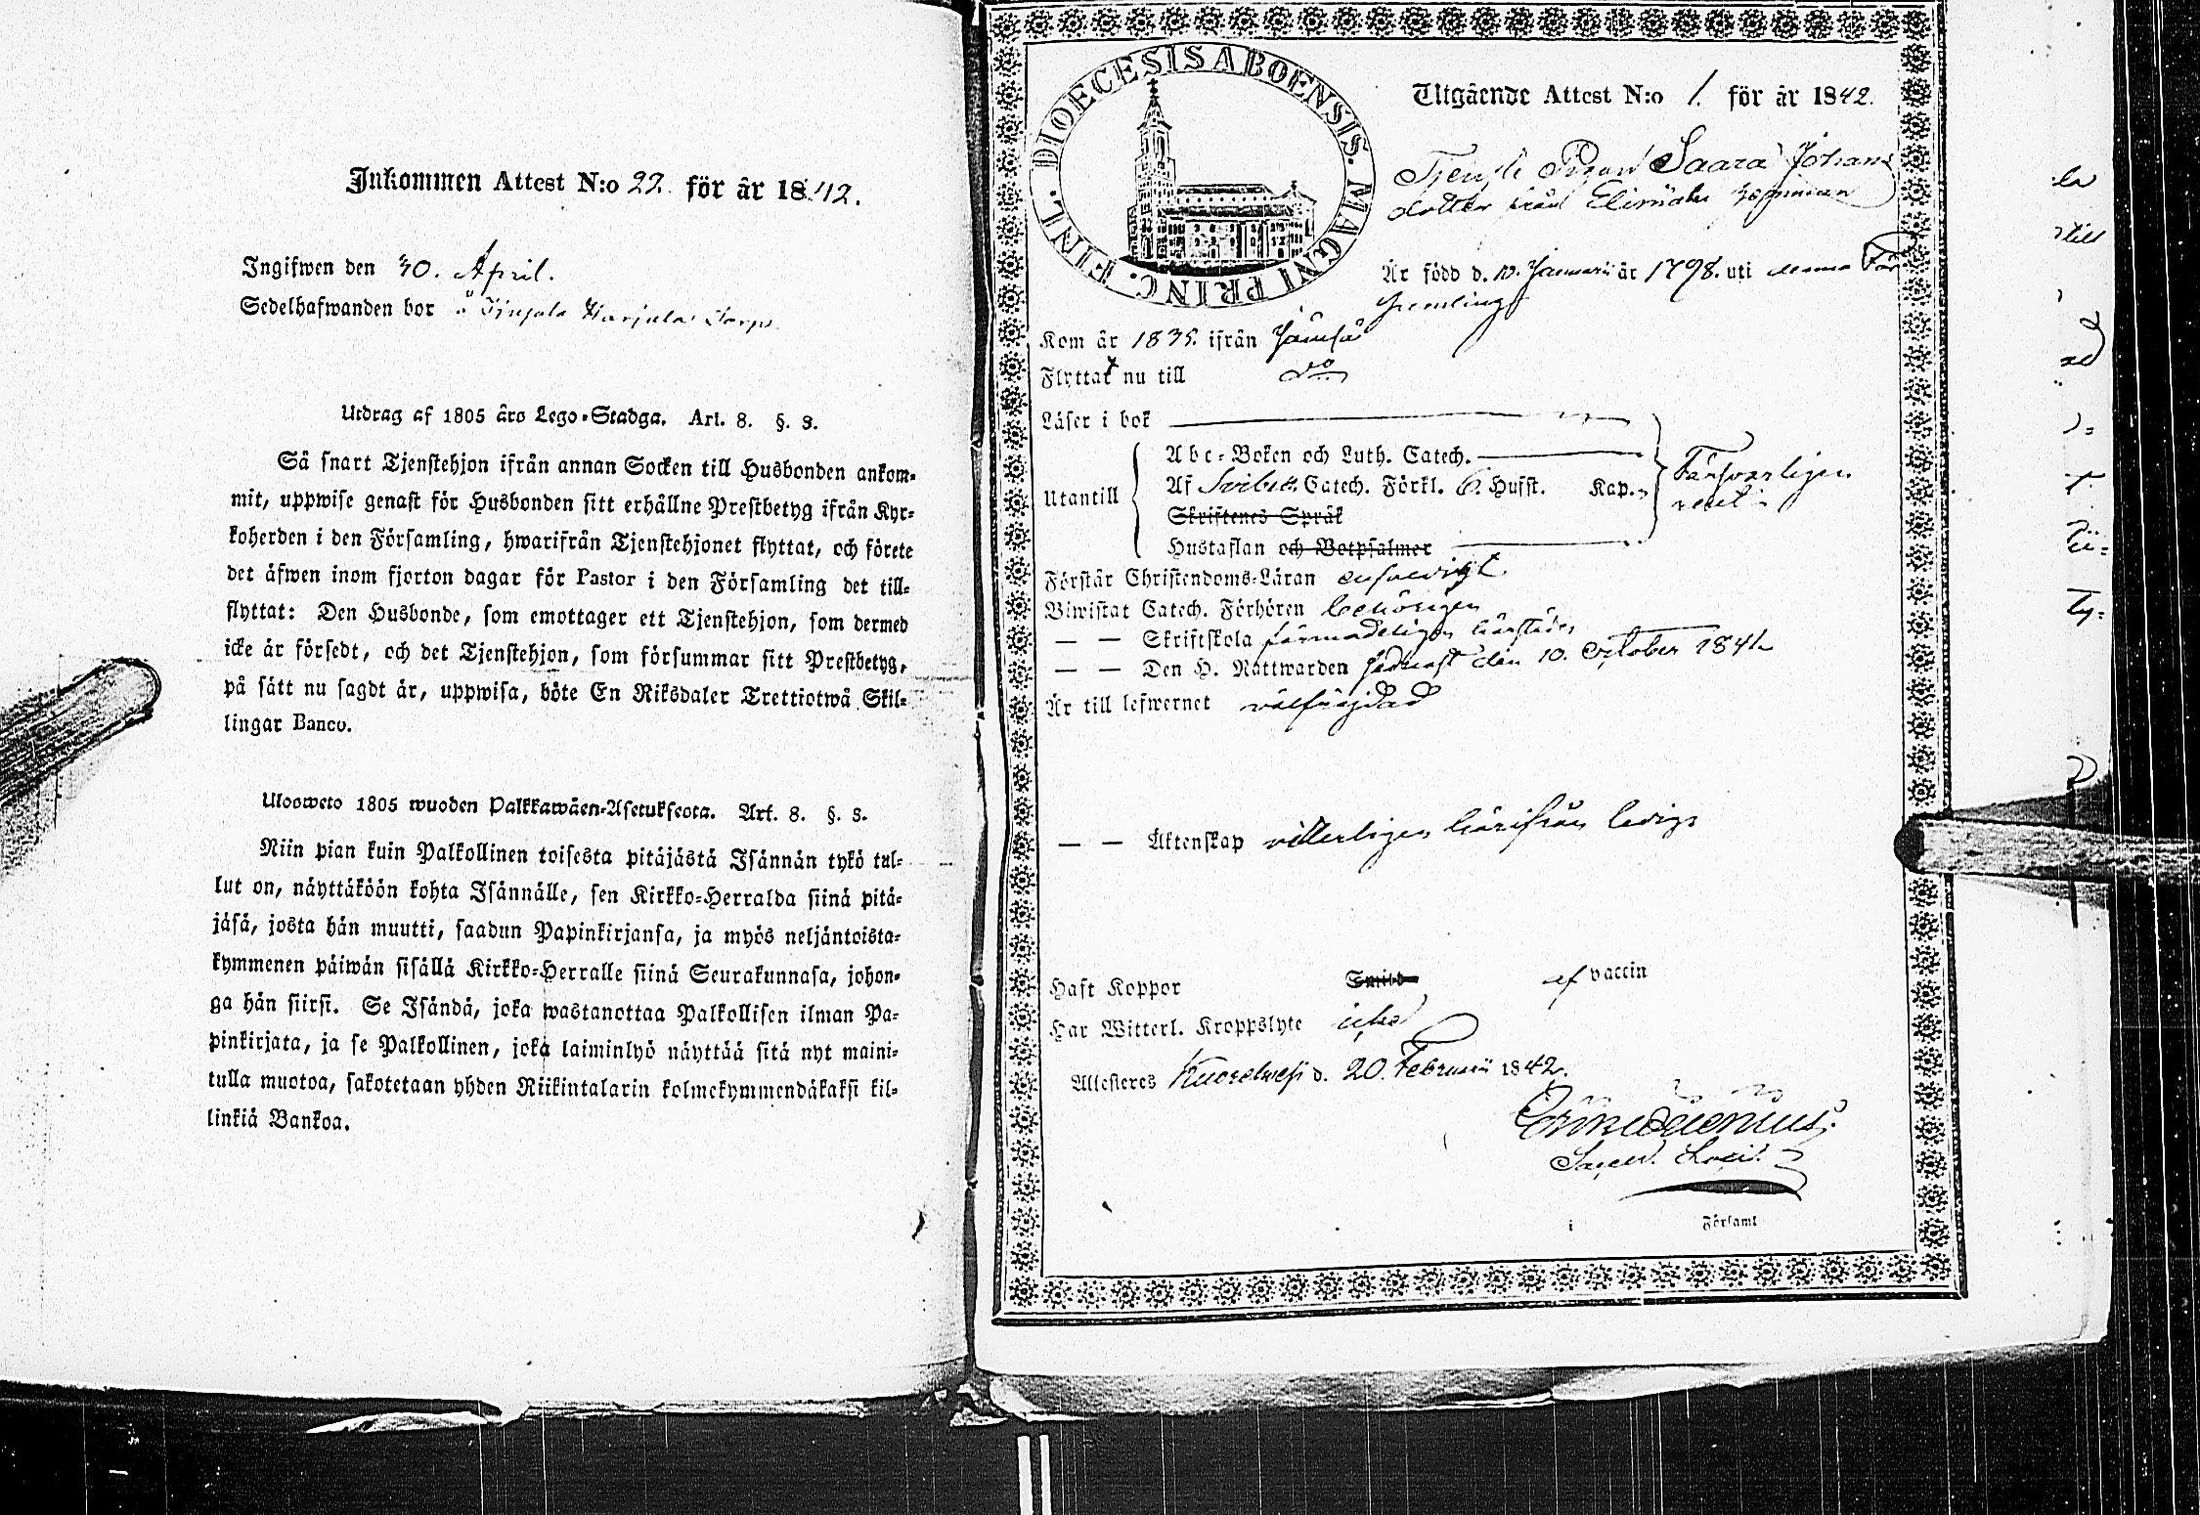 Inkommen Attest N:o 22. för år 1842.
Ingifwen den 30. April.
Sedelhafwanden bor å
Utdrag af 1805 års Lego-Stadga. Art. 8. §. 3.
Så snart Tjenstehjon ifrån annan Socken till Husbonden ankom-
mit, uppwise genast för Husbonden sitt erhållne Prestbetyg ifrån Kyr-
koherden i den Församling, hwarifrån Tjenstehjonet flyttat, och förete
det äfwen inom fjorton dagar för Pastor i den Församling det till-
flyttat: Den Husbonde, som emottager ett Tjenstehjon, som dermed
icke är försedt, och det Tjenstehjon, som försummar sitt Prestbetyg,
på sätt nu sagdt är, uppwisa, böte En Riksdaler Trettiotwå Skil-
lingar Banco.
Ulosweto 1805 wuoden Palkkawäen-Asetuksesta. Art. 8. §. 3.
Niin pian kuin Palkollinen toisesta pitäjästä Isännän tykö tul-
lut on, näyttäköön kohta Isännälle, sen Kirkko-Herralda siinä pitä-
jäsä, josta hän muutti, saadun Papinkirjansa, ja myös neljäntoista-
kymmenen päiwän sisällä Kirkko-Herralle siinä Seurakunnasa, johon-
ga hän siirsi. Se Isändä, joka wastanottaa Palkollisen ilman Pa-
pinkirjata, ja se Palkollinen, joka laiminlyö näyttää sitä nyt maini-
tulla muotoa, sakotetaan yhden Riikintalarin kolmekymmendäkaksi kil-
linkiä Bankoa.
DIOECESIS ABOENSIS. MAGNI PRINC. FINL.
Utgående Attest N:o 1. för år 1842.
Tjenste Pigan Saara Johans
dotter från Elimäki
Är född d. 10. Januarii år 1798. uti denna För
samling
Kom år 1835. ifrån Jämsä
Flyttar nu till do
Läser i bok
Utantill
Abc-Boken och Luth. Catech.
Af Svebelii Catech. Förkl. 6. Husst. Kap.
Skriftenes Språk
Hustaflan och Botpsalmer
Försvarligen
Förstår Christendoms-Läran enfaldigt
Biwistat Catech. Förhören behörigen
— — Skriftskola
— — Den H. Nattwarden sednast den 10. October 1841.
Är till lefwernet välfrägdad
— — Äktenskap vitterligen härifrån ledig
Haft Koppor Smitt- ef vaccin
Har Witterl. Kroppslyte icke
Attesteres Kuorehvesi d. 20. Februarii 1842.
Församl